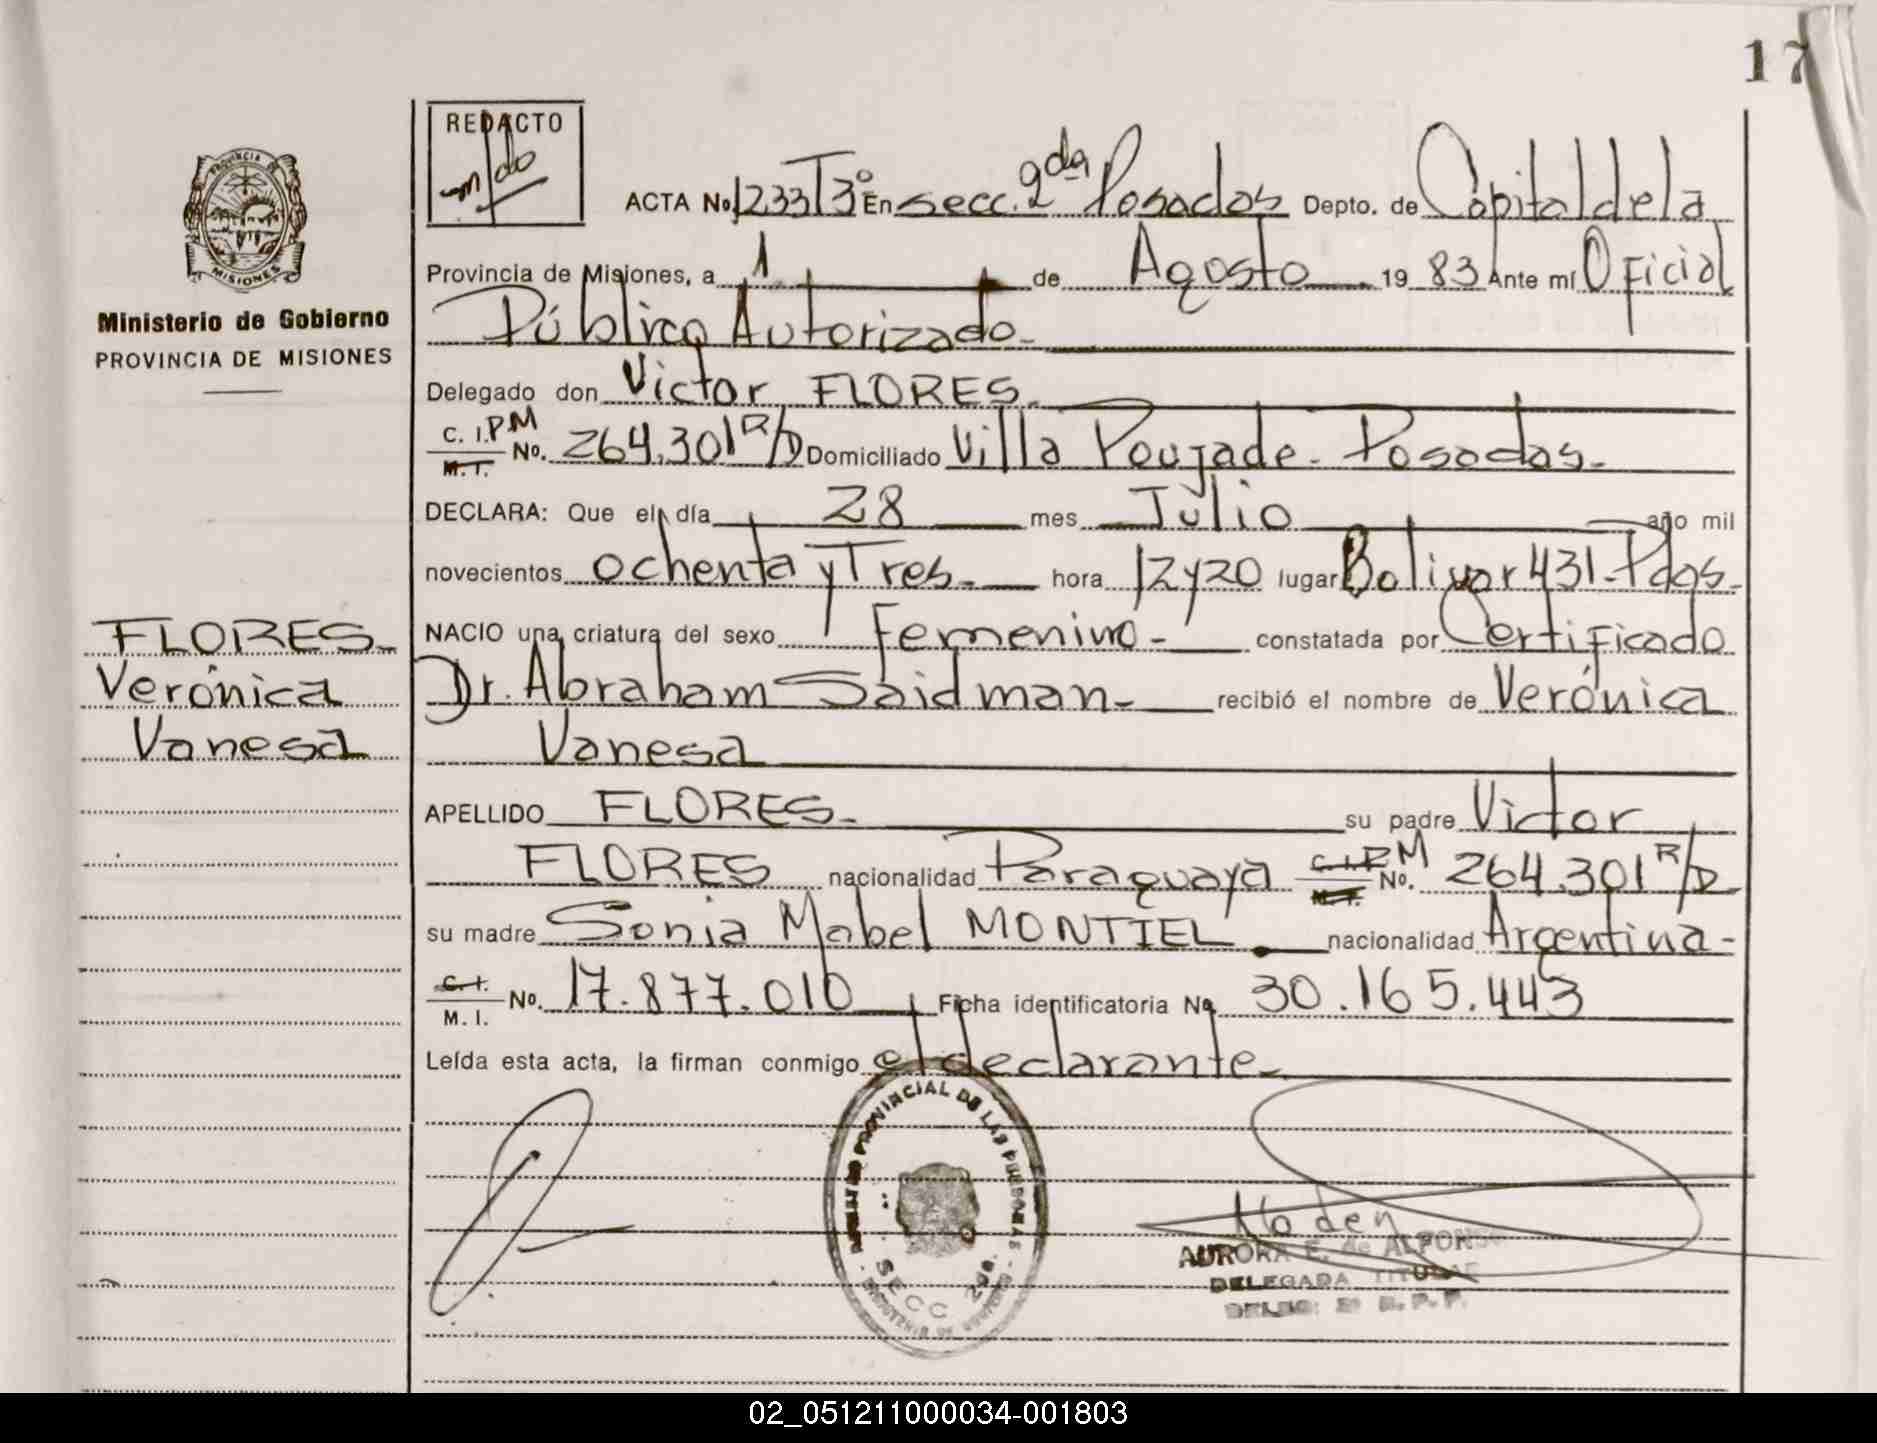 17
REDACTO
m/do
PROVINCIA DE
MISIONES
Ministerio de Gobierno
PROVINCIA DE MISIONES
ACTA No. 1233 Tº3 En secc. 2da Posadas Depto. de Capital de la
Provincia de Misiones, a 1 de Agosto 1983 Ante mí Oficial
Público Autorizado.-
Delegado don Victor FLORES.-
C. I.P.M M. I. No. 264.301 R/D Domiciliado Villa Poujade - Posadas.-
DECLARA: Que el día 28 mes Julio año mil
novecientos ochenta y Tres.- hora 12 y 20 lugar Bolivar 431 - Pdas.-
NACIO una criatura del sexo Femenino.- constatada por Certificado
Dr. Abraham Saidman.- recibió el nombre de Verónica
Vanesa
APELLIDO FLORES.- su padre Victor
FLORES nacionalidad Paraguaya C.I.P.M M. I. No. 264.301 R/D
su madre Sonia Mabel MONTIEL.- nacionalidad Argentina-
C. I. M. I. No. 17.877.010 Ficha identificatoria No. 30.165.443
Leída esta acta, la firman conmigo el declarante.-
FLORES.-
Verónica
Vanesa
REGISTRO PROVINCIAL DE LAS PERSONAS
SECC 2da.
AURORA E. de ALFONSO
DELEGADA TITULAR
02_051211000034-001803